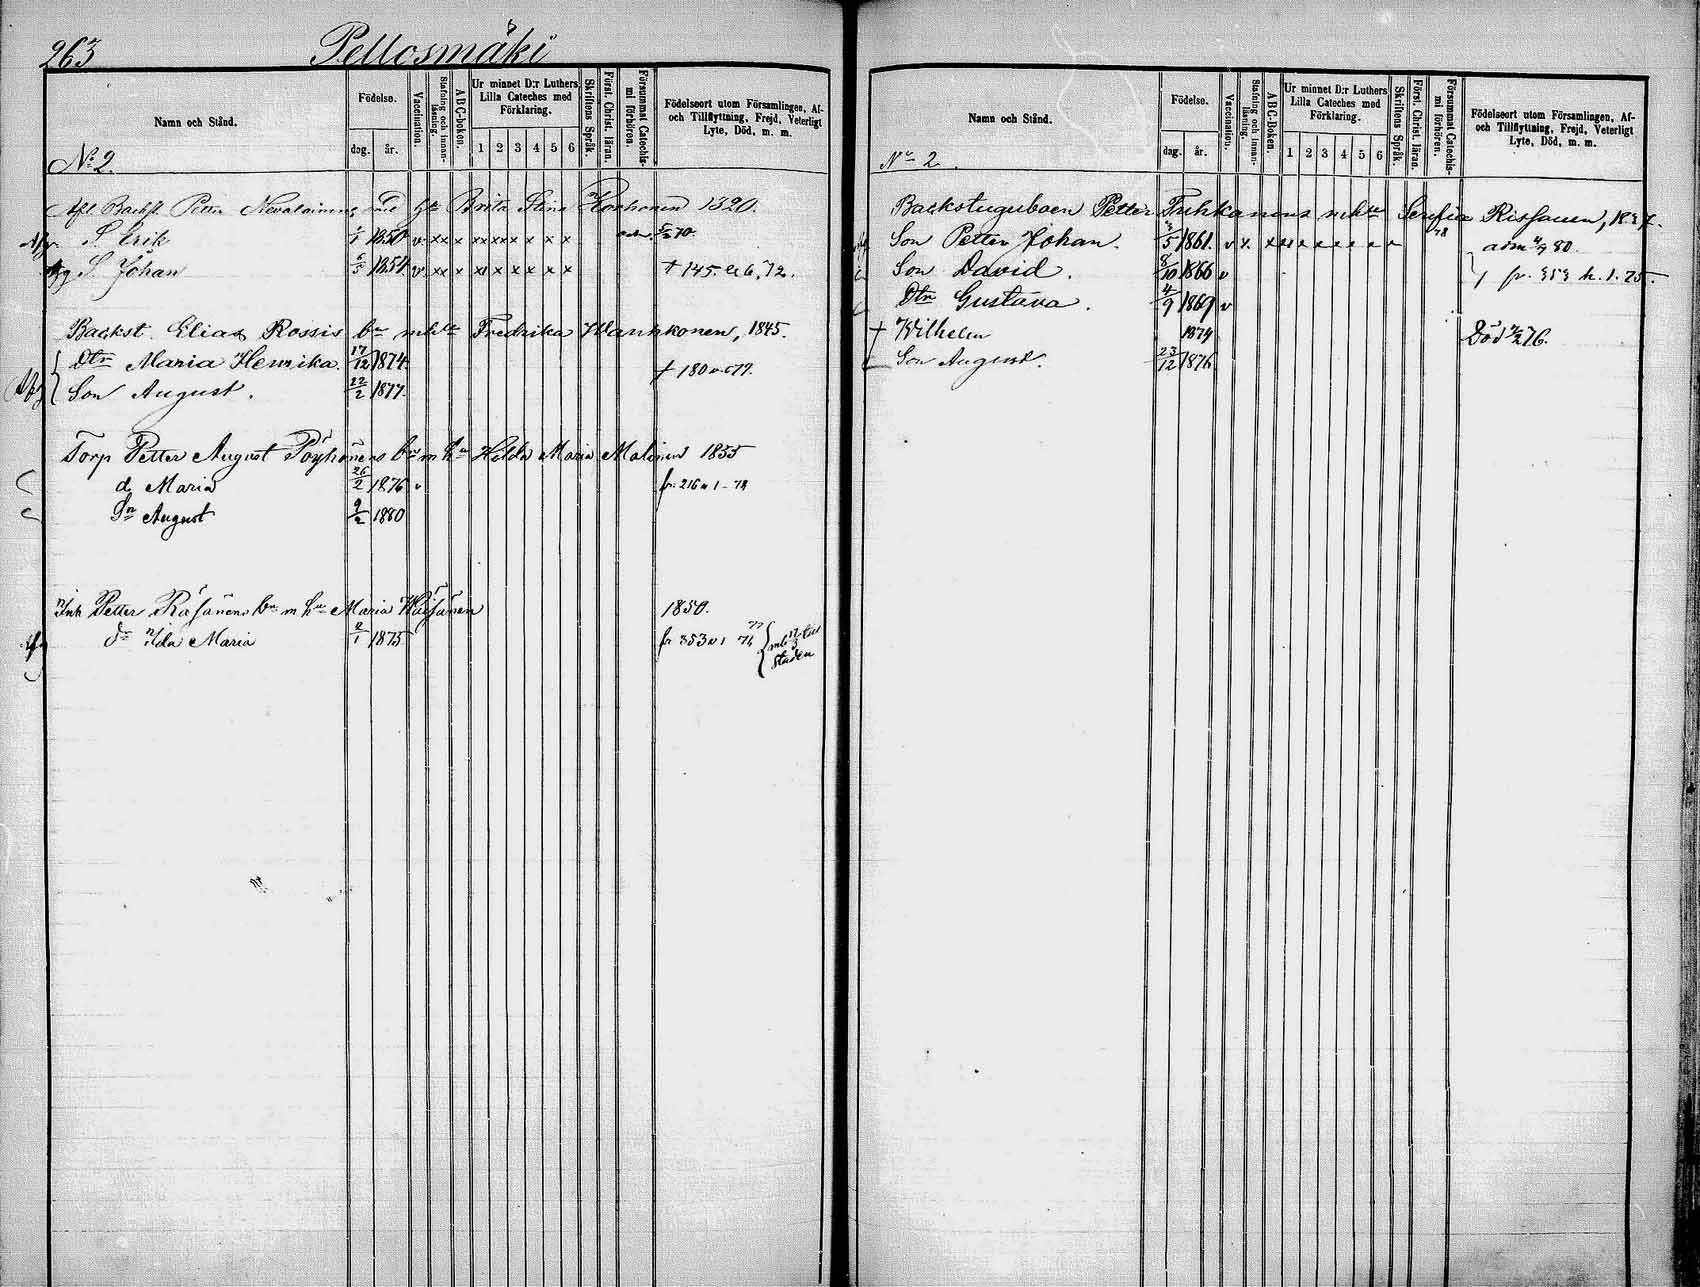 263 Pellosmäki
Namn och Stånd.
Födelse.
dag. år.
Vaccination.
Stafning och innanläsning.
ABC-boken.
Ur minnet D:r Luthers Lilla Cateches med Förklaring.
1 2 3 4 5 6
Skriftens Språk.
Först. Christ. läran.
Försummat Catechismi förhören.
Födelseort utom Församlingen, Af- och Tillflyttning, Frejd, Veterligt Lyte, Död, m. m.
No 2.
Afl. Backst. Petter Nevalainens enka Brita Stina 1820.
S. Erik 1850 v xx x xx xx x x x x 70.
S. Johan 6/5 1854 v xx x xx x x x x x † 145. 6, 72.
Backst. Elias Rossis bn m hu Fredrika Wankkonen, 1845.
Dtr Maria Henrika. 17/12 1874. † 180 77.
Son August. 22/2 1877.
Torp Petter August Pöyhönens bn m hu Hilda Maria Malinen 1855
d Maria 26/2 1876 v fr. 216 1 - 78
Sn August 9/2 1880
Inh Petter Räsänens bn m hu Maria Väisänen 1850.
dr Ida Maria 2/1 1875 fr 353 1 76 77 mb 17/3 till staden
Namn och Stånd.
Födelse.
dag. år.
Vaccination.
Stafning och innanläsning.
ABC-Boken.
Ur minnet D:r Luthers Lilla Cateches med Förklaring.
1 2 3 4 5 6
Skriftens Språk.
Först. Christ. läran.
Försummat Catechismi förhören.
Födelseort utom Församlingen, Af- och Tillflyttning, Frejd, Veterligt Lyte, Död, m. m.
No 2.
Backstuguboen Petter Tuhkanens enka Serafia Rissanen, 1837.
Son Petter Johan. 1861. v x. x xx x x x x x x 78 adm 80.
Son David. 8/10 1866 v fr. 353 h. 1. 75.
Dtr Gustava. 4/9 1869 v
† Wilhelm 1874 Död 76.
Son August. 23/12 1876